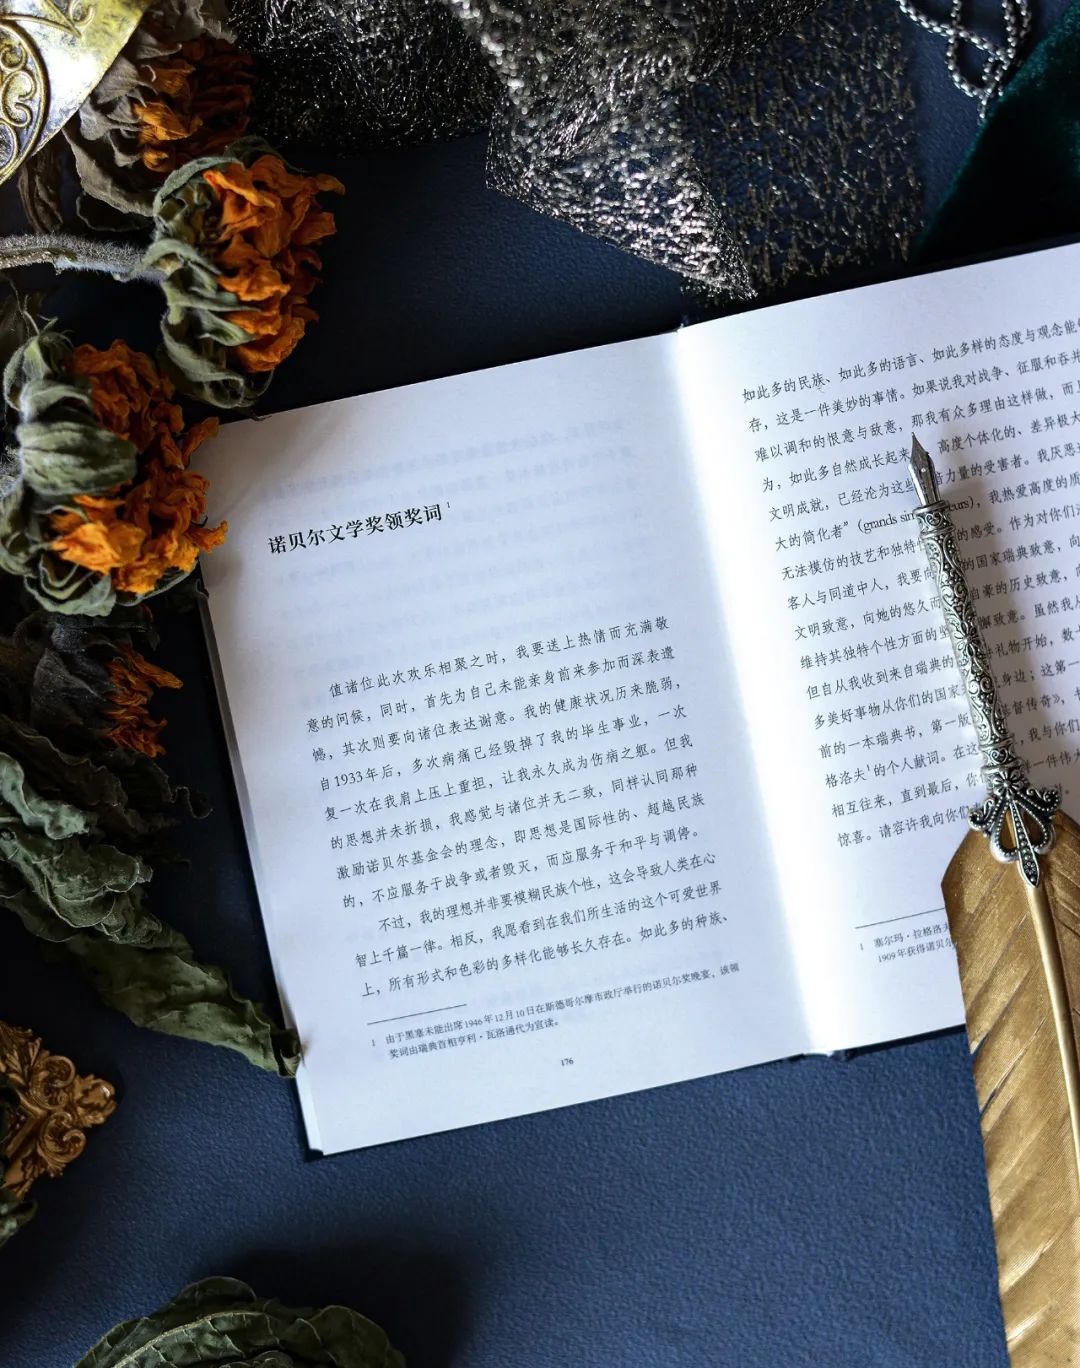 诺贝尔文学奖领奖词¹
值诸位此次欢乐相聚之时，我要送上热情而充满敬
意的问候，同时，首先为自己未能亲身前来参加而深表遗
憾，其次则要向诸位表达谢意。我的健康状况历来脆弱，
自1933年后，多次病痛已经毁掉了我的毕生事业，一次
复一次在我肩上压上重担，让我永久成为伤病之躯。但我
的思想并未折损，我感觉与诸位并无二致，同样认同那种
激励诺贝尔基金会的理念，即思想是国际性的、超越民族
的，不应服务于战争或者毁灭，而应服务于和平与调停。
不过，我的理想并非要模糊民族个性，这会导致人类在心
智上千篇一律。相反，我愿看到在我们所生活的这个可爱世界
上，所有形式和色彩的多样化能够长久存在。如此多的种族、
1 由于黑塞未能出席1946年12月10日在斯德哥尔摩市政厅举行的诺贝尔奖晚宴，该领
奖词由瑞典首相亨利·瓦洛通代为宣读。
176
如此多的民族、如此多的语言、如此多样的态度与观念能
存，这是一件美妙的事情。如果说我对战争、征服和吞并
难以调和的恨意与敌意，那我有众多理由这样做，而
为，如此多自然成长起来 高度个体化的、差异极大
文明成就，已经沦为这些 暗力量的受害者。我厌恶
大的简化者”（grands sim curs），我热爱高度的质
无法模仿的技艺和独特 的感受。作为对你们
客人与同道中人，我要向 的国家瑞典致意，向
文明致意，向她的悠久而 自豪的历史致意，
维持其独特个性方面的坚 懈致意。虽然我
但自从我收到来自瑞典的 礼物开始，数
多美好事物从你们的国家 身边；这第一
前的一本瑞典书，第一版 基督传奇》，
格洛夫¹的个人献词。在这 ，我与你们
相互往来，直到最后，你们 样一件伟大
惊喜。请容许我向你们
1 塞尔玛·拉格洛夫
1909年获得诺贝尔